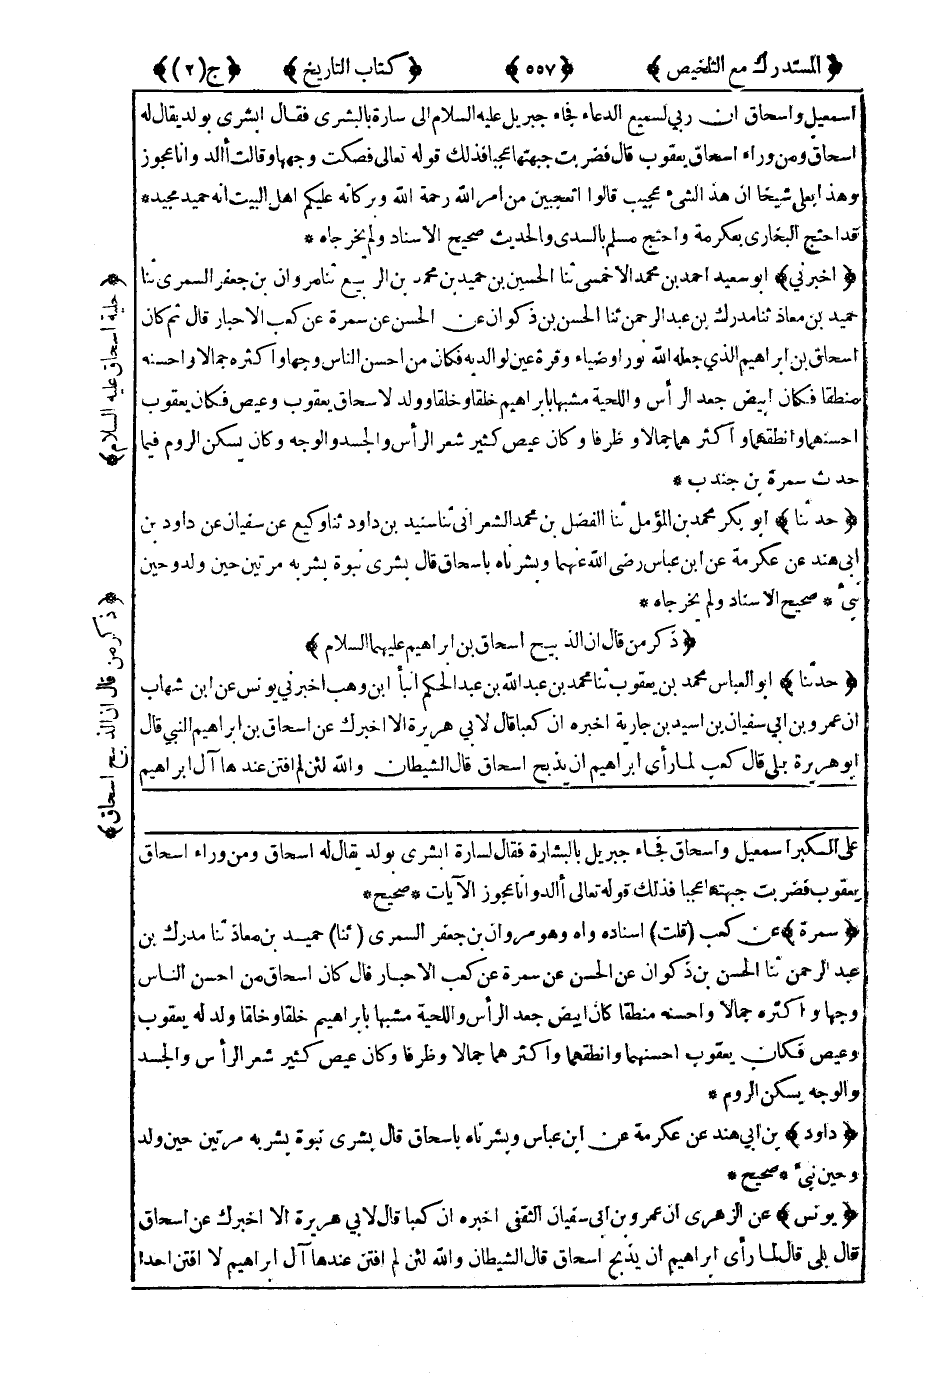 ﴿ المستدرك مع التلخيص ﴾ ﴿ ٥٥٧ ﴾ ﴿ كتاب التاريخ ﴾ ﴿ ج (٢) ﴾
اسمعيل واسحاق ان ربي لسميع الدعاء فجاء جبريل عليه السلام الى سارة بالبشرى فقال ابشرى بولد يقال له
اسحاق ومن وراء اسحاق يعقوب قال فضربت جبهتها عجبا فذلك قوله تعالى فصكت وجهها وقالت أألد وانا عجوز
وهذا بعلى شيخا ان هذا الشئ عجيب قالوا اتعجبين من امر الله رحمة الله وبركاته عليكم اهل البيت انه حميد مجيد *
قد احتج البخارى بعكرمة واحتج مسلم بالسدى والحديث صحيح الاسناد ولم يخرجاه *
﴿ اخبرني ﴾ ابو سعيد احمد بن محمد الاخمسى ثنا الحسين بن حميد بن محمد بن الربيع ثنا مروان بن جعفر السمرى ثنا
حميد بن معاذ ثنا مدرك بن عبد الرحمن ثنا الحسن بن ذكوان عن الحسن عن سمرة عن كعب الاحبار قال ثم كان
اسحاق بن ابراهيم الذي جعله الله نورا وضياء وقرة عين لوالديه فكان من احسن الناس وجها واكثره جمالا واحسنه
منطقا فكان ابيض جعد الرأس واللحية مشبها بابراهيم خلقا وخلقا وولد لاسحاق يعقوب وعيص فكان يعقوب
احسنهما وانطقهما واكثرهما جمالا وظرفا وكان عيص كثير شعر الرأس والجسد والوجه وكان يسكن الروم فيما
حدث سمرة بن جندب *
﴿ حدثنا ﴾ ابو بكر محمد بن المؤمل ثنا الفضل بن محمد الشعرانى ثنا سنيد بن داود ثنا وكيع عن سفيان عن داود بن
ابي هند عن عكرمة عن ابن عباس رضى الله عنهما وبشرناه باسحاق قال بشرى نبوة بشر به مرتين حين ولد وحين
نبئ * صحيح الاسناد ولم يخرجاه *
﴿ ذكر من قال ان الذبيح اسحاق بن ابراهيم عليهما السلام ﴾
﴿ حدثنا ﴾ ابو العباس محمد بن يعقوب ثنا محمد بن عبد الله بن عبد الحكم انبأ ابن وهب اخبرني يونس عن ابن شهاب
ان عمرو بن ابي سفيان بن اسيد بن جارية اخبره ان كعبا قال لابي هريرة الا اخبرك عن اسحاق بن ابراهيم النبي قال
ابو هريرة بلى قال كعب لما رأى ابراهيم ان يذبح اسحاق قال الشيطان والله لئن لم افتن عند ها آل ابراهيم
على الكبر اسمعيل واسحاق فجاء جبريل بالبشارة فقال لسارة ابشرى بولد يقال له اسحاق ومن وراء اسحاق
يعقوب فضربت جبهتها عجبا فذلك قوله تعالى أألد وانا عجوز الآيات * صحيح *
﴿ سمرة ﴾ عن كعب (قلت) اسناده واه وهو مروان بن جعفر السمرى (ثنا) حميد بن معاذ ثنا مدرك بن
عبد الرحمن ثنا الحسن بن ذكوان عن الحسن عن سمرة عن كعب الاحبار قال كان اسحاق من احسن الناس
وجها واكثره جمالا واحسنه منطقا كان ابيض جعد الرأس واللحية مشبها بابراهيم خلقا وخلقا ولد له يعقوب
وعيص فكان يعقوب احسنهما وانطقهما واكثرهما جمالا وظرفا وكان عيص كثير شعر الرأس والجسد
والوجه يسكن الروم *
﴿ داود ﴾ بن ابي هند عن عكرمة عن ابن عباس وبشرناه باسحاق قال بشرى نبوة بشر به مرتين حين ولد
وحين نبئ * صحيح *
﴿ يونس ﴾ عن الزهرى ان عمرو بن ابى سفيان الثقفى اخبره ان كعبا قال لابي هريرة الا اخبرك عن اسحاق
قال بلى قال لما رأى ابراهيم ان يذبح اسحاق قال الشيطان والله لئن لم افتن عندها آل ابراهيم لا افتن احدا
﴿ حلية اسحاق عليه السلام ﴾
﴿ ذكر من قال ان الذبيح اسحاق ﴾